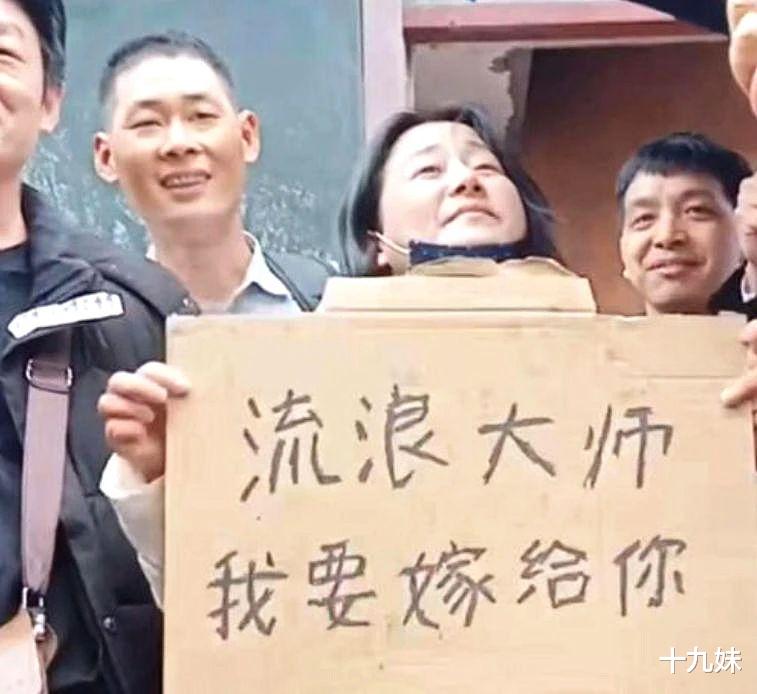 流浪大师
我要嫁给你
十九妹